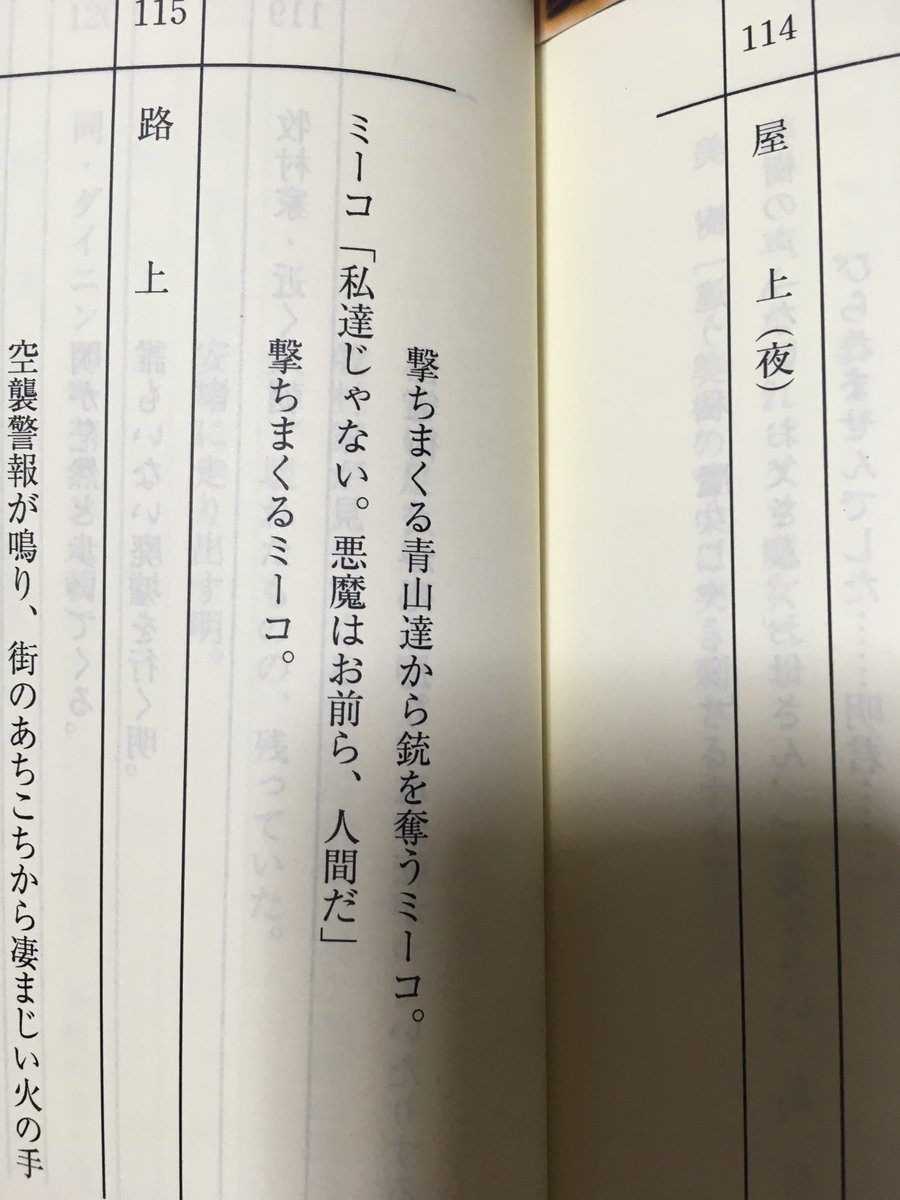 114
屋上(夜)
撃ちまくる青山達から銃を奪うミーコ。
ミーコ「私達じゃない。悪魔はお前ら、人間だ」
撃ちまくるミーコ。
115
路上
空襲警報が鳴り、街のあちこちから凄まじい火の手